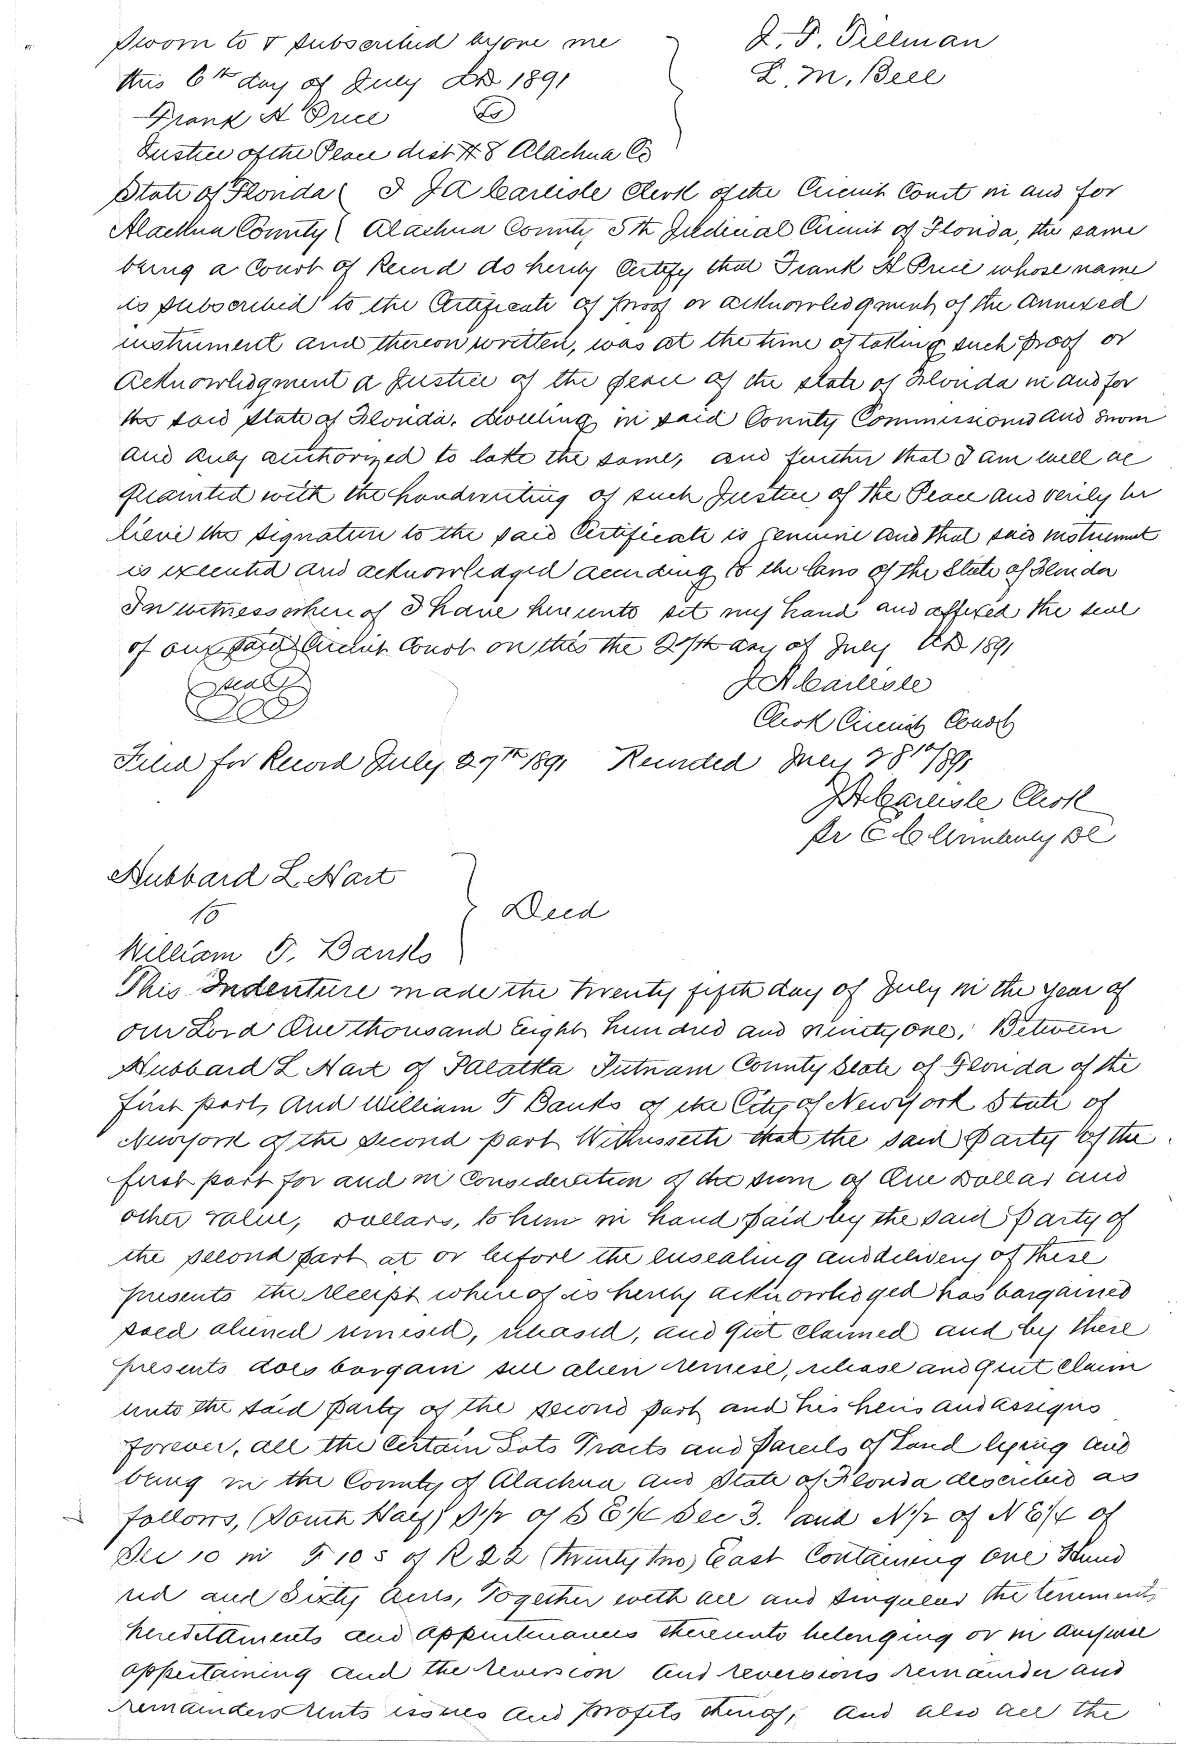 Sworn to & subscribed before me
this 6th day of July AD 1891
Frank H Price (LS)
Justice of the Peace dist # 8 Alachua Co
J. F. Tillman
L. M. Bell
State of Florida ( I J A Carlisle Clerk of the Circuit Court in and for
Alachua County ( Alachua County 5th Judicial Circuit of Florida, the same
being a Court of Record do hereby Certify that Frank H Price whose name
is subscribed to the Certificate of proof or acknowledgment of the annexed
instrument and thereon written, was at the time of taking such proof or
Acknowledgment a Justice of the peace of the state of Florida in and for
the said State of Florida, dwelling in said County Commissioned and sworn
and duly authorized to take the same, and further that I am well ac
quainted with the handwriting of such Justice of the Peace and verily be
lieve the signature to the said Certificate is genuine and that said instrument
is executed and acknowledged according to the laws of the State of Florida
In witness where of I have here unto set my hand and affixed the seal
of our said Circuit Court on this the 27th day of July AD 1891
Seal
J A Carlisle
Clerk Circuit Court
Filed for Record July 27th 1891 Recorded July 28th/891
J A Carlisle Clerk
Pr C C DC
Hubbard L. Hart
to
William T. Banks
Deed
This Indenture made the twenty fifth day of July in the year of
our Lord One thousand Eight hundred and ninety one, Between
Hubbard L Hart of Palatka Putnam County State of Florida of the
first part, And William T Banks of the City of New York State of
New York of the second part Witnesseth that the said party of the
first part for and in Consideration of the sum of One Dollar and
other value, Dollars, to him in hand paid by the said party of
the second part at or before the ensealing and delivery of these
presents the receipt where of is hereby acknowledged has bargained
sold aliened remised, released, and quit claimed and by these
presents does bargain sell alien remise, release and quit claim
unto the said party of the second part and his heirs and assigns
forever, all the Certain Lots Tracts and Parcels of Land lying and
being in the County of Alachua and State of Florida described as
follows, (South Half) S1/2 of S E1/4 Sec 3. and N1/2 of N E1/4 of
Sec 10 in T 10 S of R 22 (twenty two) East Containing One Hund
red and Sixty Acres, Together with all and singular the tenements
hereditaments and appurtenances thereunto belonging or in anywise
appertaining and the reversion and reversions remainder and
remainders rents issues and profits thereof, and also all the